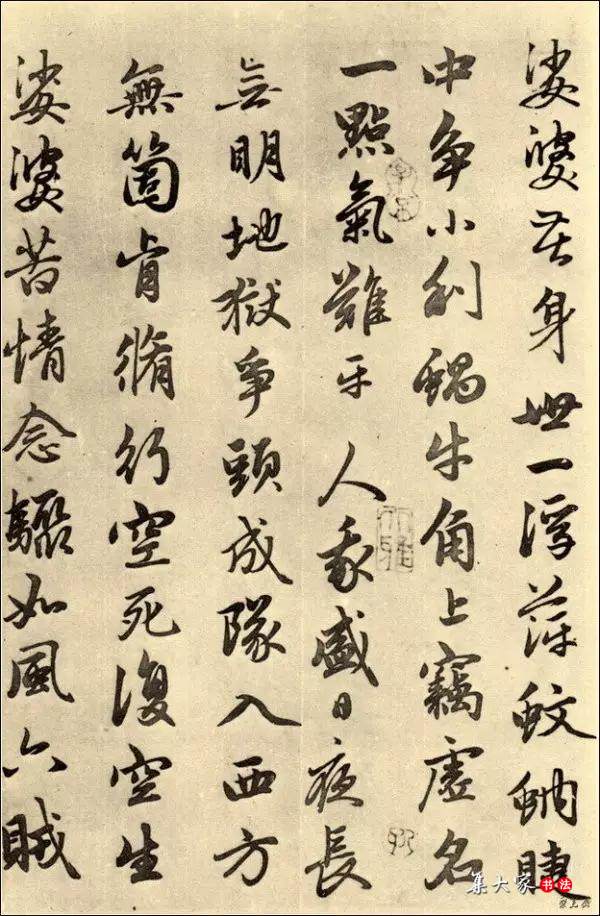 娑婆苦身世一浮萍蚊蚋睫
中争小利蝸牛角上竊虛名
一點氣難平 人我盛日夜長
无明地獄爭頭成隊入西方
無箇肯脩行空死復空生
娑婆苦情念驟如風六賊
集大家书法